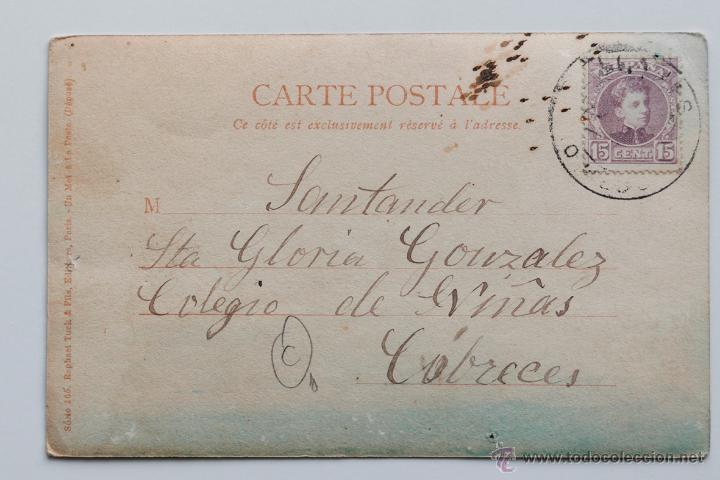 CARTE POSTALE
Ce côté est exclusivement réservé à l'adresse.
15 CENT 15
M Santander
Sta Gloria Gonzalez
Colegio de Niñas
Cobreces
Série 165. Raphael Tuck & Fils, Editeurs, Paris. - Un Mot à La Poste. (Déposé)
© todocoleccion
www.todocoleccion.net